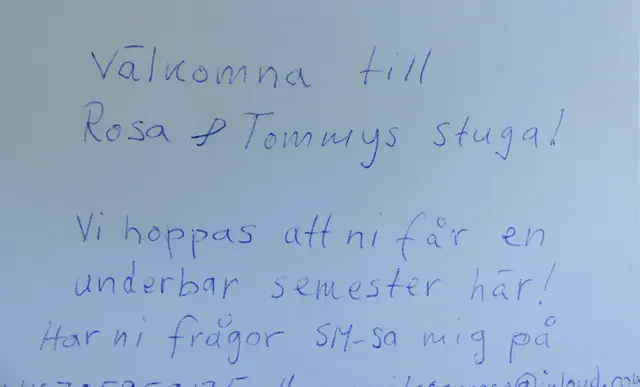 Välkomna till
Rosa & Tommys stuga!
Vi hoppas att ni får en
underbar semester här!
Har ni frågor SM-sa mig på